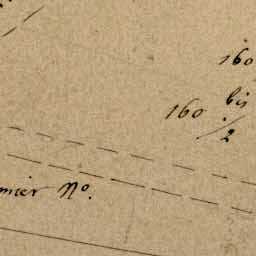 160
160 bis/2
mier No.